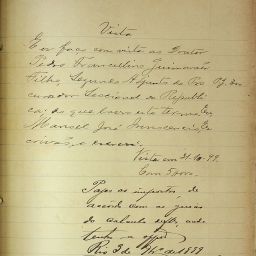 Vista
E eu faço com vista ao Doutor
Pedro Francellino Guimarães
Filho, Segundo Adjunto do Pro
curador Seccional da Republi
ca; do que lavro este termo. Eu
Manoel José
crivão, o escrevi.
Vista em 31-10-99.
Com 5
Pagos os impostos de
accordo com as guias
do calculo
tenho a oppor
Rio 3 de 9bro de 1899